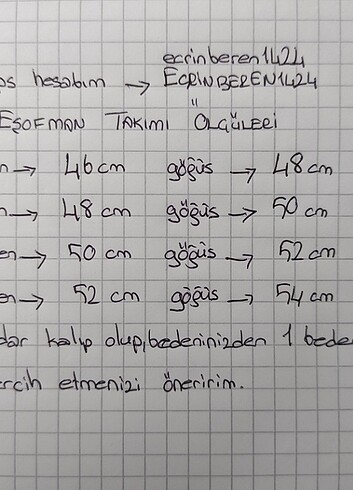 ecrinberen1424
os hesabım → ECRİNBEREN1424
EŞOFMAN TAKIMI ÖLÇÜLERİ
n → 46 cm göğüs → 48 cm
n → 48 cm göğüs → 50 cm
en → 50 cm göğüs → 52 cm
en → 52 cm göğüs → 54 cm
dar kalıp olup,bedeninizden 1 bede
ercih etmenizi öneririm.